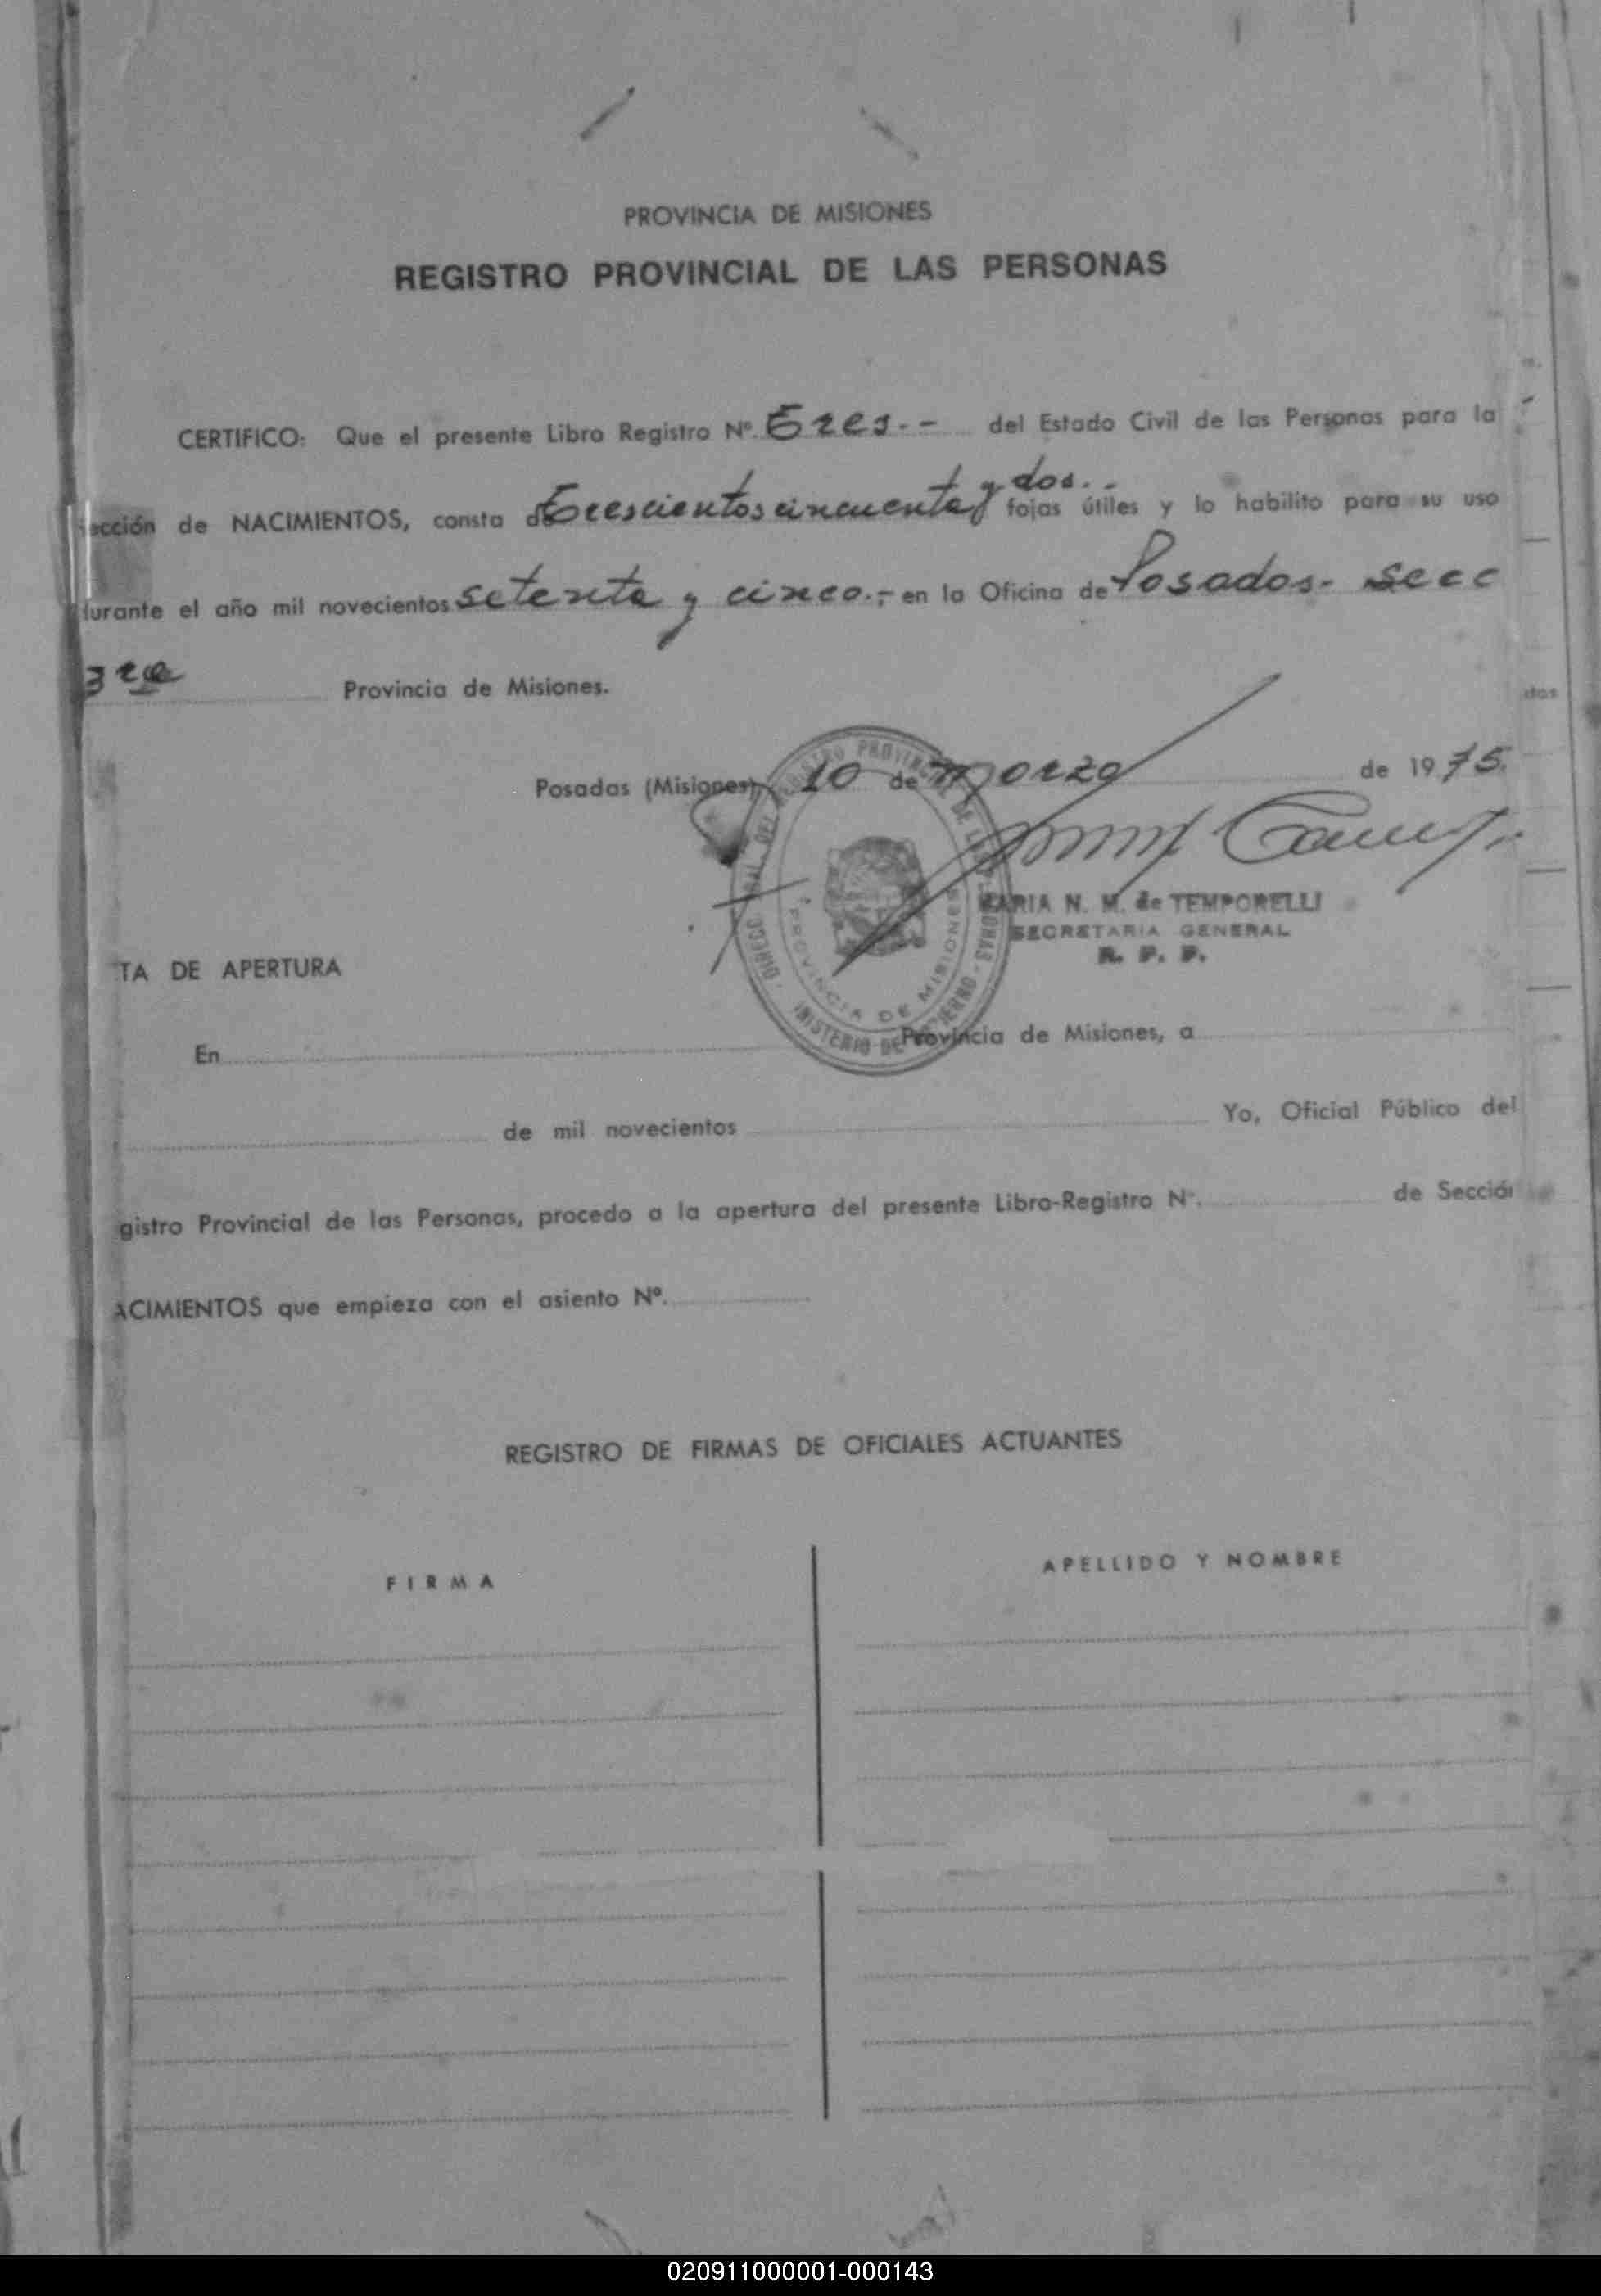 PROVINCIA DE MISIONES
REGISTRO PROVINCIAL DE LAS PERSONAS
CERTIFICO: Que el presente Libro Registro Nº. Tres.- del Estado Civil de las Personas para la
sección de NACIMIENTOS, consta de Trescientos cincuenta y dos.- fojas útiles y lo habilito para su uso
durante el año mil novecientos setenta y cinco.- en la Oficina de Posadas. Secc
3ra Provincia de Misiones.
Posadas (Misiones), 10 de Marzo de 1975.
MARIA N. M. de TEMPORELLI
SECRETARIA GENERAL
R. P. P.
DIRECC GRAL. DEL REGISTRO PROVINCIAL DE LAS PERSONAS
PROVINCIA DE MISIONES
MINISTERIO DE GOBIERNO
TA DE APERTURA
En Provincia de Misiones, a
de mil novecientos Yo, Oficial Público del
gistro Provincial de las Personas, procedo a la apertura del presente Libro-Registro Nº. de Sección
ACIMIENTOS que empieza con el asiento Nº.
REGISTRO DE FIRMAS DE OFICIALES ACTUANTES
FIRMA APELLIDO Y NOMBRE
020911000001-000143